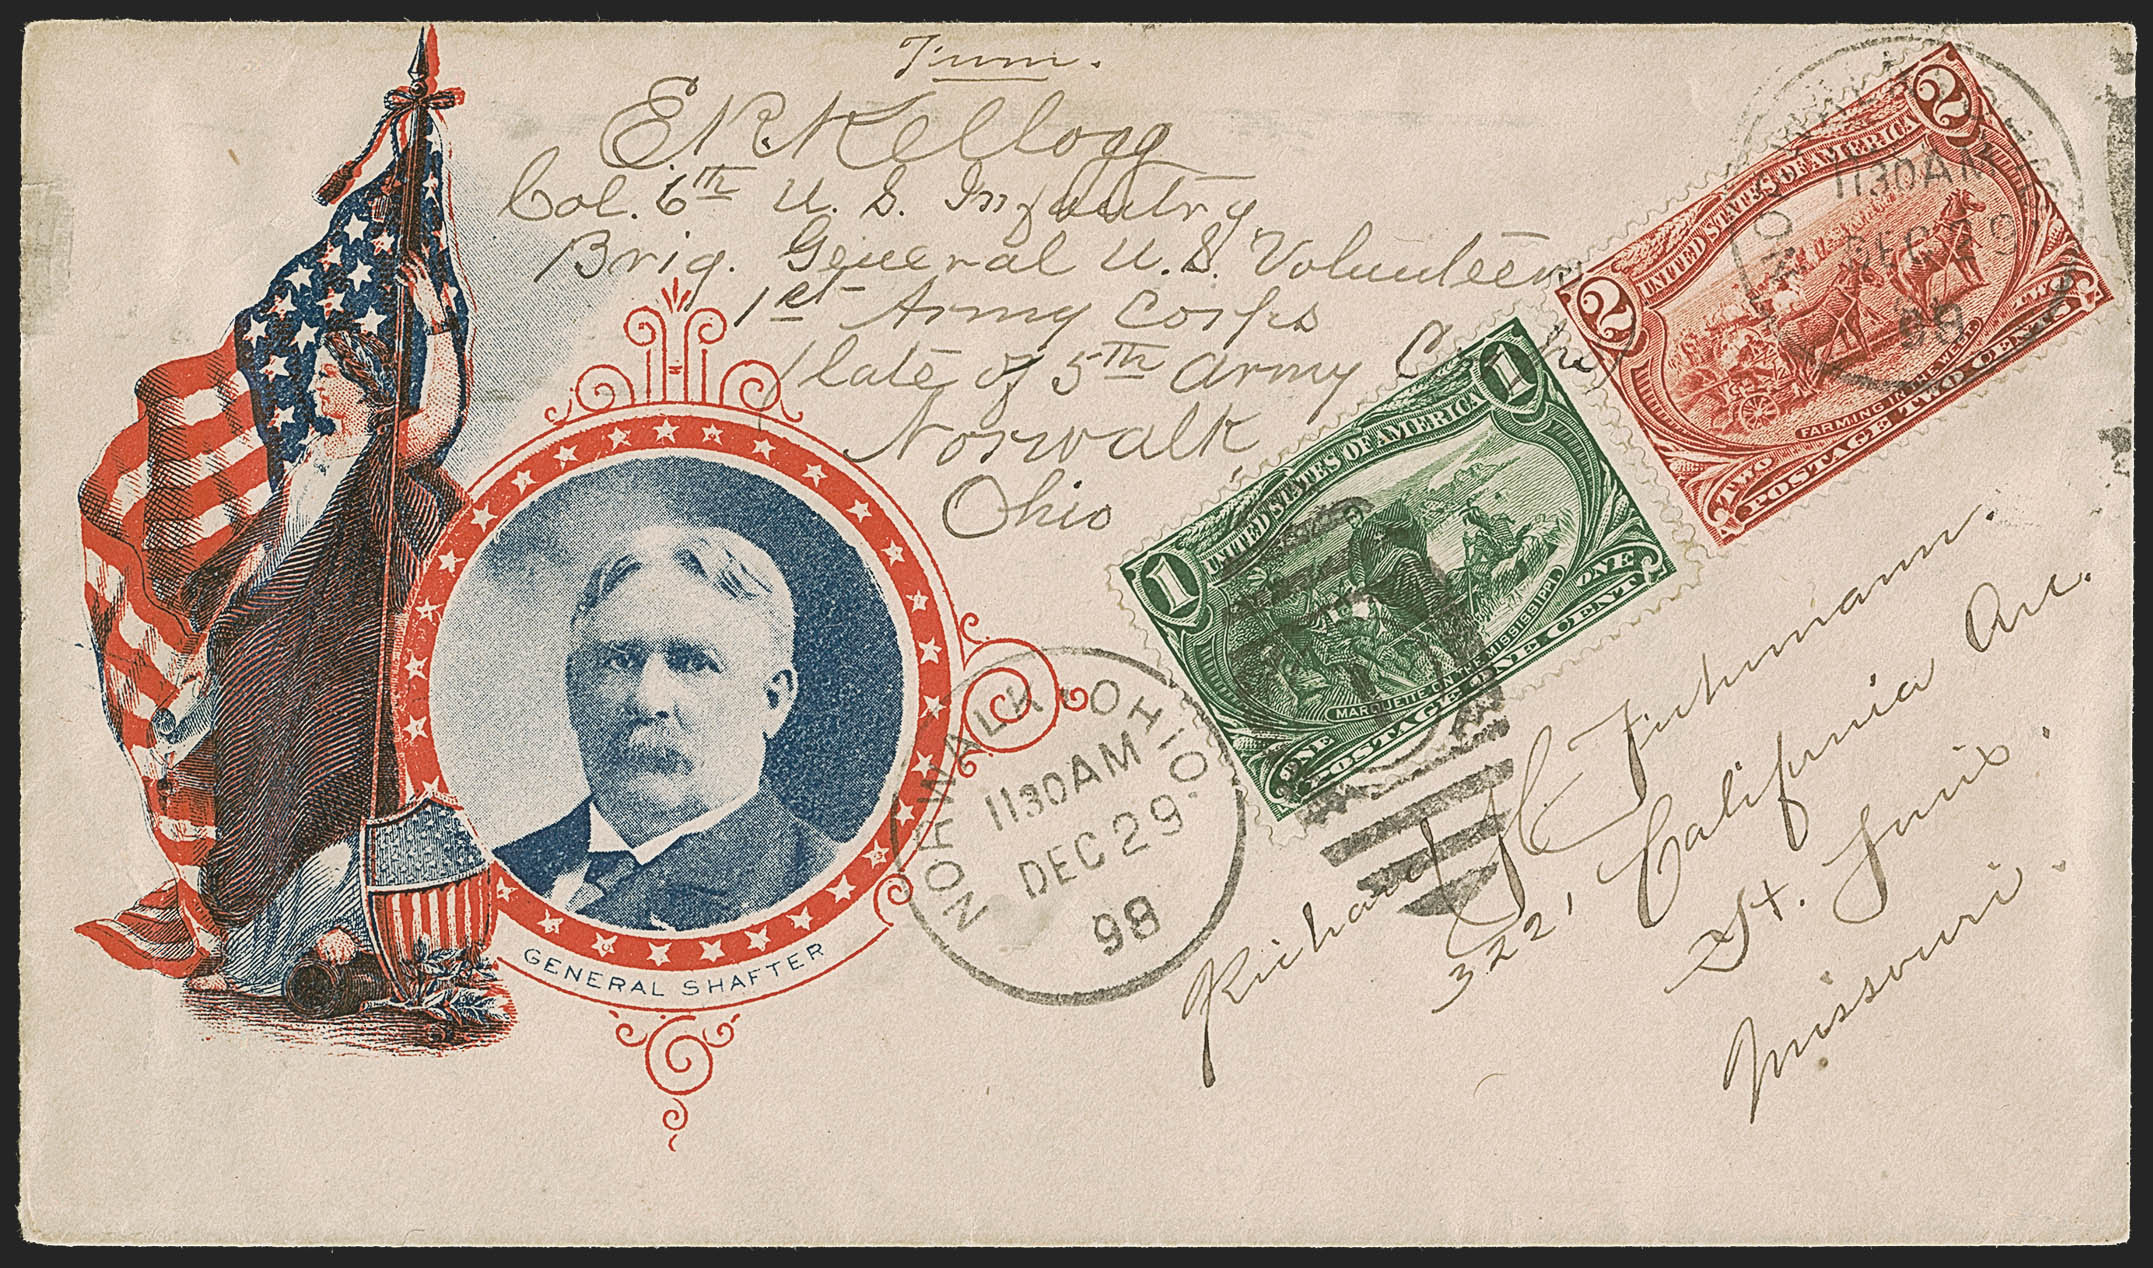 From.
E. R. Kellogg
Col. 6th U. S. Infantry
Brig. General U. S. Volunteers
1st Army Corps
(late of 5th Army Corps)
Norwalk
Ohio
GENERAL SHAFTER
NORWALK OHIO.
1130AM
DEC 29
98
1
1
UNITED STATES OF AMERICA
MARQUETTE ON THE MISSISSIPPI.
ONE POSTAGE ONE CENT ONE
2
2
UNITED STATES OF AMERICA
FARMING IN THE WEST
TWO POSTAGE TWO CENTS TWO
1130AM
DEC 29
98
Richard H. Fuhrmann.
3221 California Ave.
St. Louis.
Missouri.